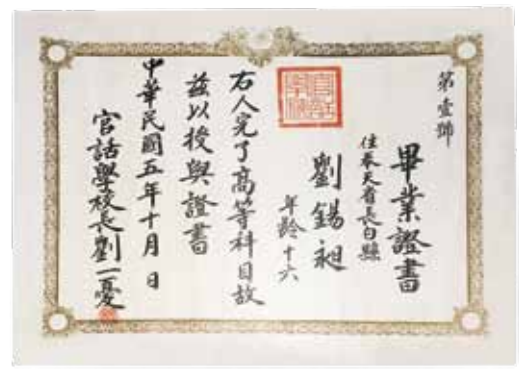 第壹號
畢業證書
住奉天省長白縣
劉錫昶
年齡十六
右人完了高等科目故
茲以授與證書
中華民國五年十月 日
官話學校長劉一憂